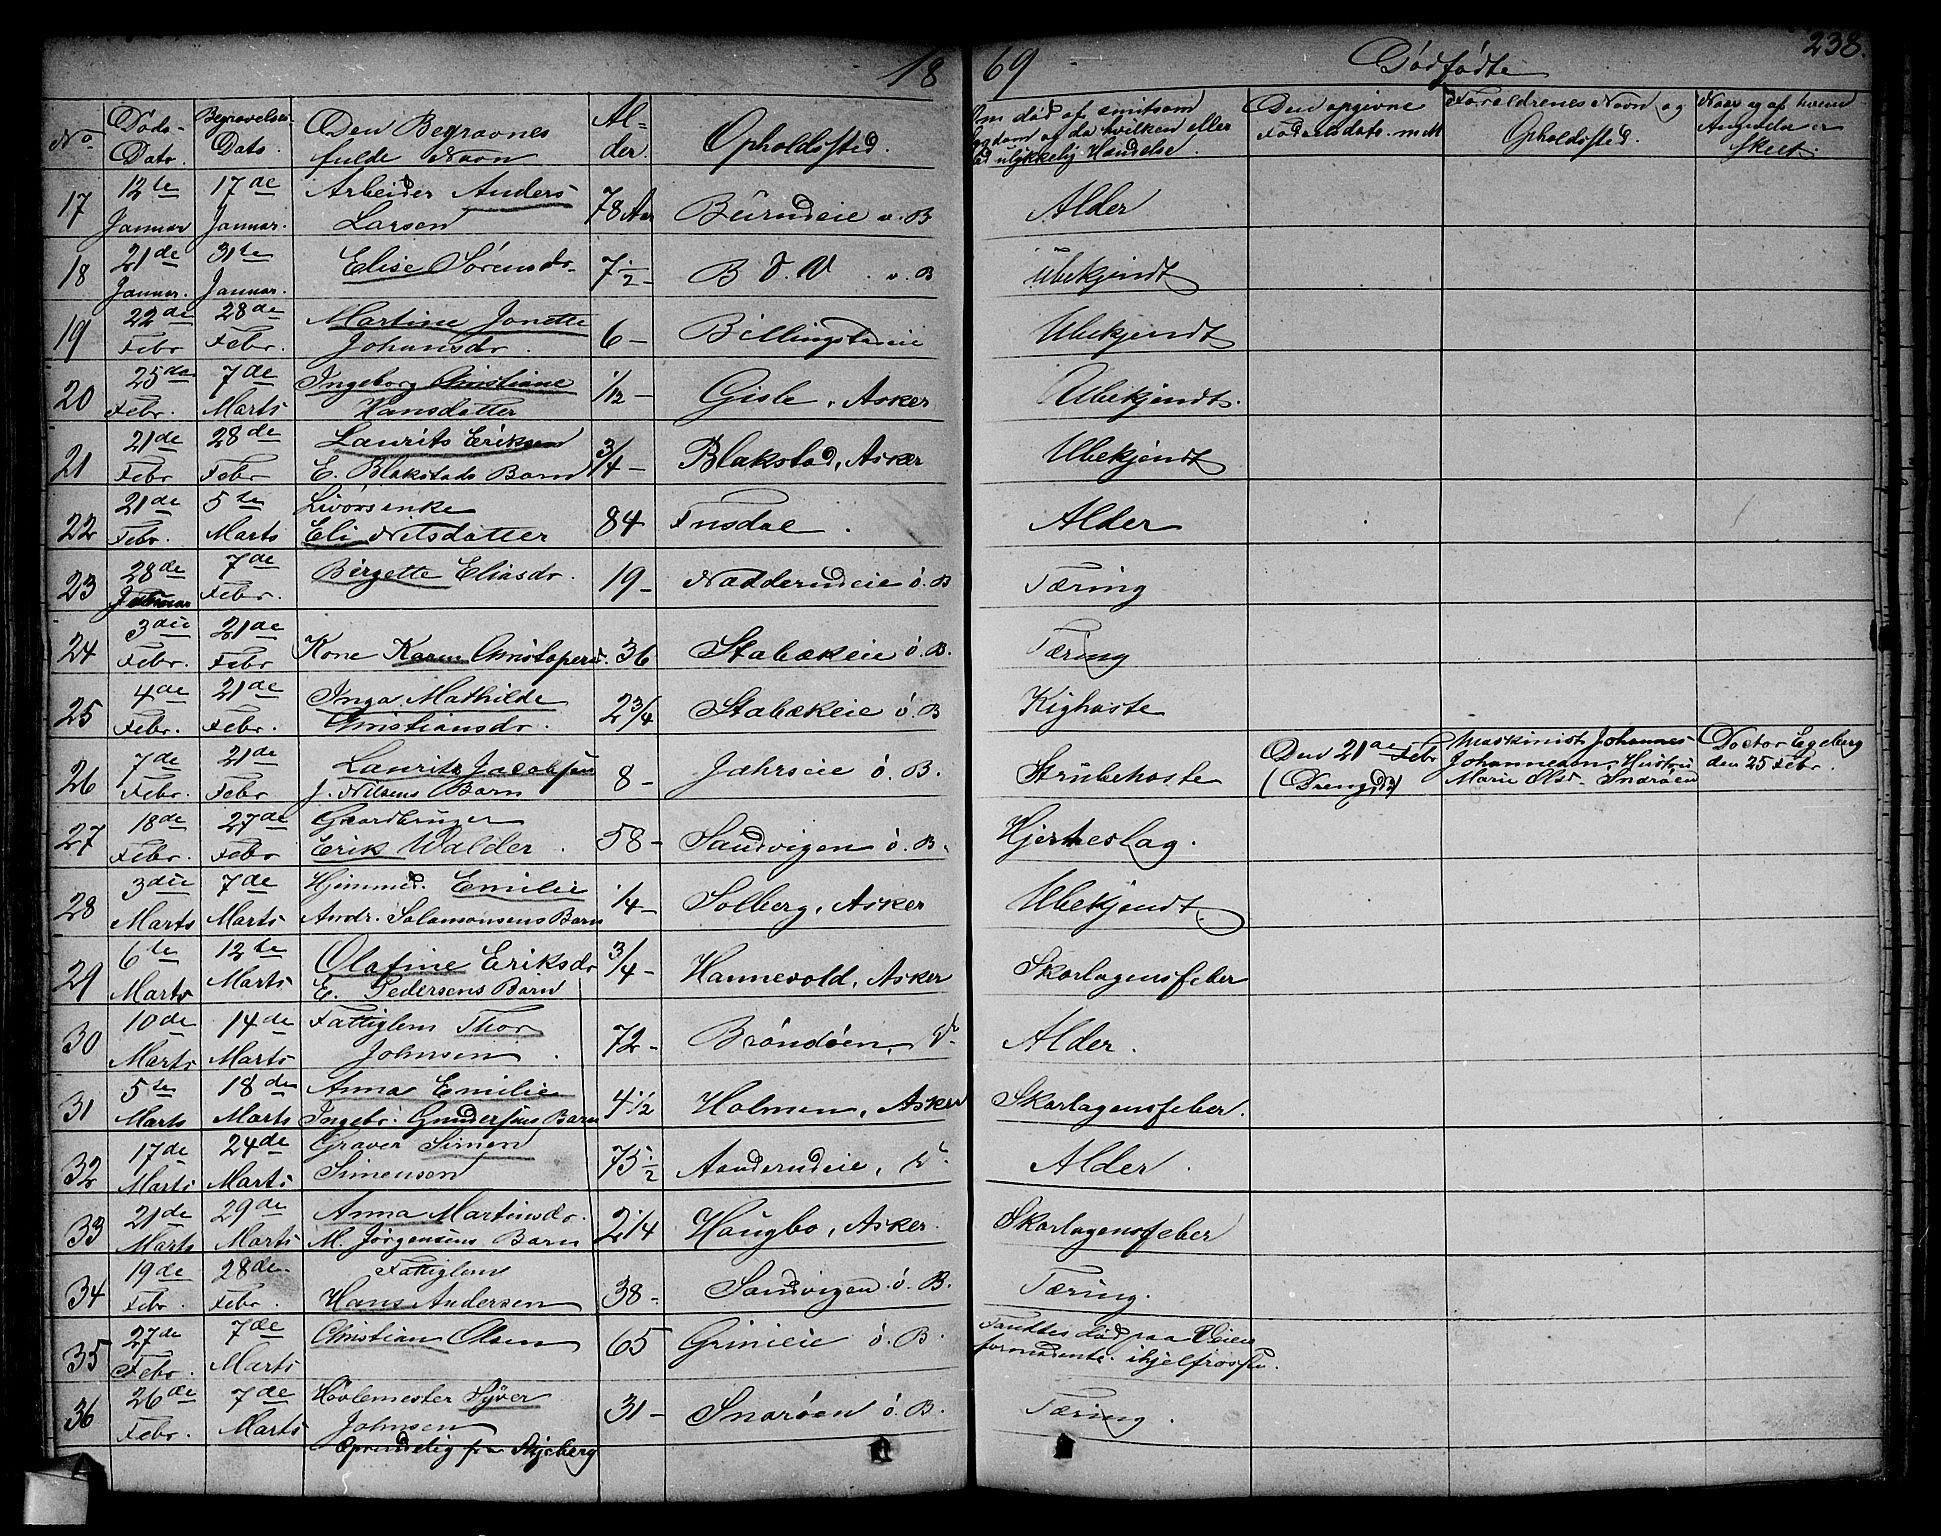 1869 Dødfødte 238.
No Døds-Dato. Begravelses Dato. Den Begravnes fulde Navn Alder. Opholdssted. Om død af smitsom Sygdom og da hvilken eller ved ulykkelig Hændelse. Den opgivne Fødselsdato m.M Forældrenes Navn og Opholdssted. Naar og af hvem Anmeldelse er skeet.
17 12te Januar 17de Januar. Arbeider Anders Larsen 78 Aar Bærudeie v. B Alder
18 21de Januar. 31te Januar. Elise Sørensdr. 7 1/2 B. V. V. v. B Ubekjendt
19 22de Febr 28de Febr. Martine Jonette Johansdr. 6 - Billingstadeie Ubekjendt
20 25de Febr. 7de Marts Ingeborg Christiane Hansdatter 1/12 - Gisle, Asker Ubekjendt.
21 21de Febr 28de Febr Laurits Eriksen E. Blakstads Barn 3/4 - Blakstad, Asker Ubekjendt
22 21de Febr. 5te Marts Livørsenke Eli Nilsdatter 84 Fusdal. Alder
23 28de Januar 7de Febr. Birgette Eliasdr. 19 - Nadderudeie ø. B Tæring
24 3die Febr. 21de Febr Kone Karen Christophersd. 36 Stabækeie ø. B. Tæring
25 4de Febr. 21de Febr. Inga Mathilde Christiansdr. 2 3/4 Stabækeie ø. B Kighoste
26 7de Febr. 21de Febr Laurits Jacobsen J. Nilsens Barn 8 - Jahrseie ø. B. Strubehoste Den 21de Febr (Dreng) Maskinist Johannes Johannesen, Hustru Marie Olsd. Snarøen Doctor Egeberg den 25 Febr.
27 18de Febr. 27de Febr Gaardbruger Erik Walder. 58 - Sandvigen ø. B. Hjerteslag.
28 3die Marts 7de Marts Hjemmed. Emilie Andr. Salamonsens Barn 1/4 - Solberg, Asker Ubekjendt.
29 6te Marts 12te Marts Olafine Eriksdr E. Pedersens Barn 3/4 - Hannevold, Asker Skarlagensfeber
30 10de Marts 14de Marts Fattiglem Thor Johnsen. 72 - Brøndøen, Alder.
31 5te Marts 18de Marts Anna Emilie Ingebr. Gundersens Barn 4 1/2 Holmen, Asker Skarlagensfeber.
32 17de Marts 24de Marts Graver Simen Simensen 75 1/2 Aanderudeie, Alder.
33 21de Marts 29de Marts Anna Martinsdr. M. Jørgensens Barn 2 1/4 Haugbo, Asker. Skarlagensfeber
34 19de Febr. 28de Febr. Fattiglem Hans Andersen 38 - Sandvigen ø. B. Tæring.
35 27de Febr. 7de Marts Christian Olsen 65 Grinieie ø. B. Fandtes død paa Veien formodentl. ihjelfrossen.
36 26de Febr. 7de Marts Høvlemester Syver Johnsen Oprindelig fra Skjeberg 31 - Snarøen ø. B. Tæring.